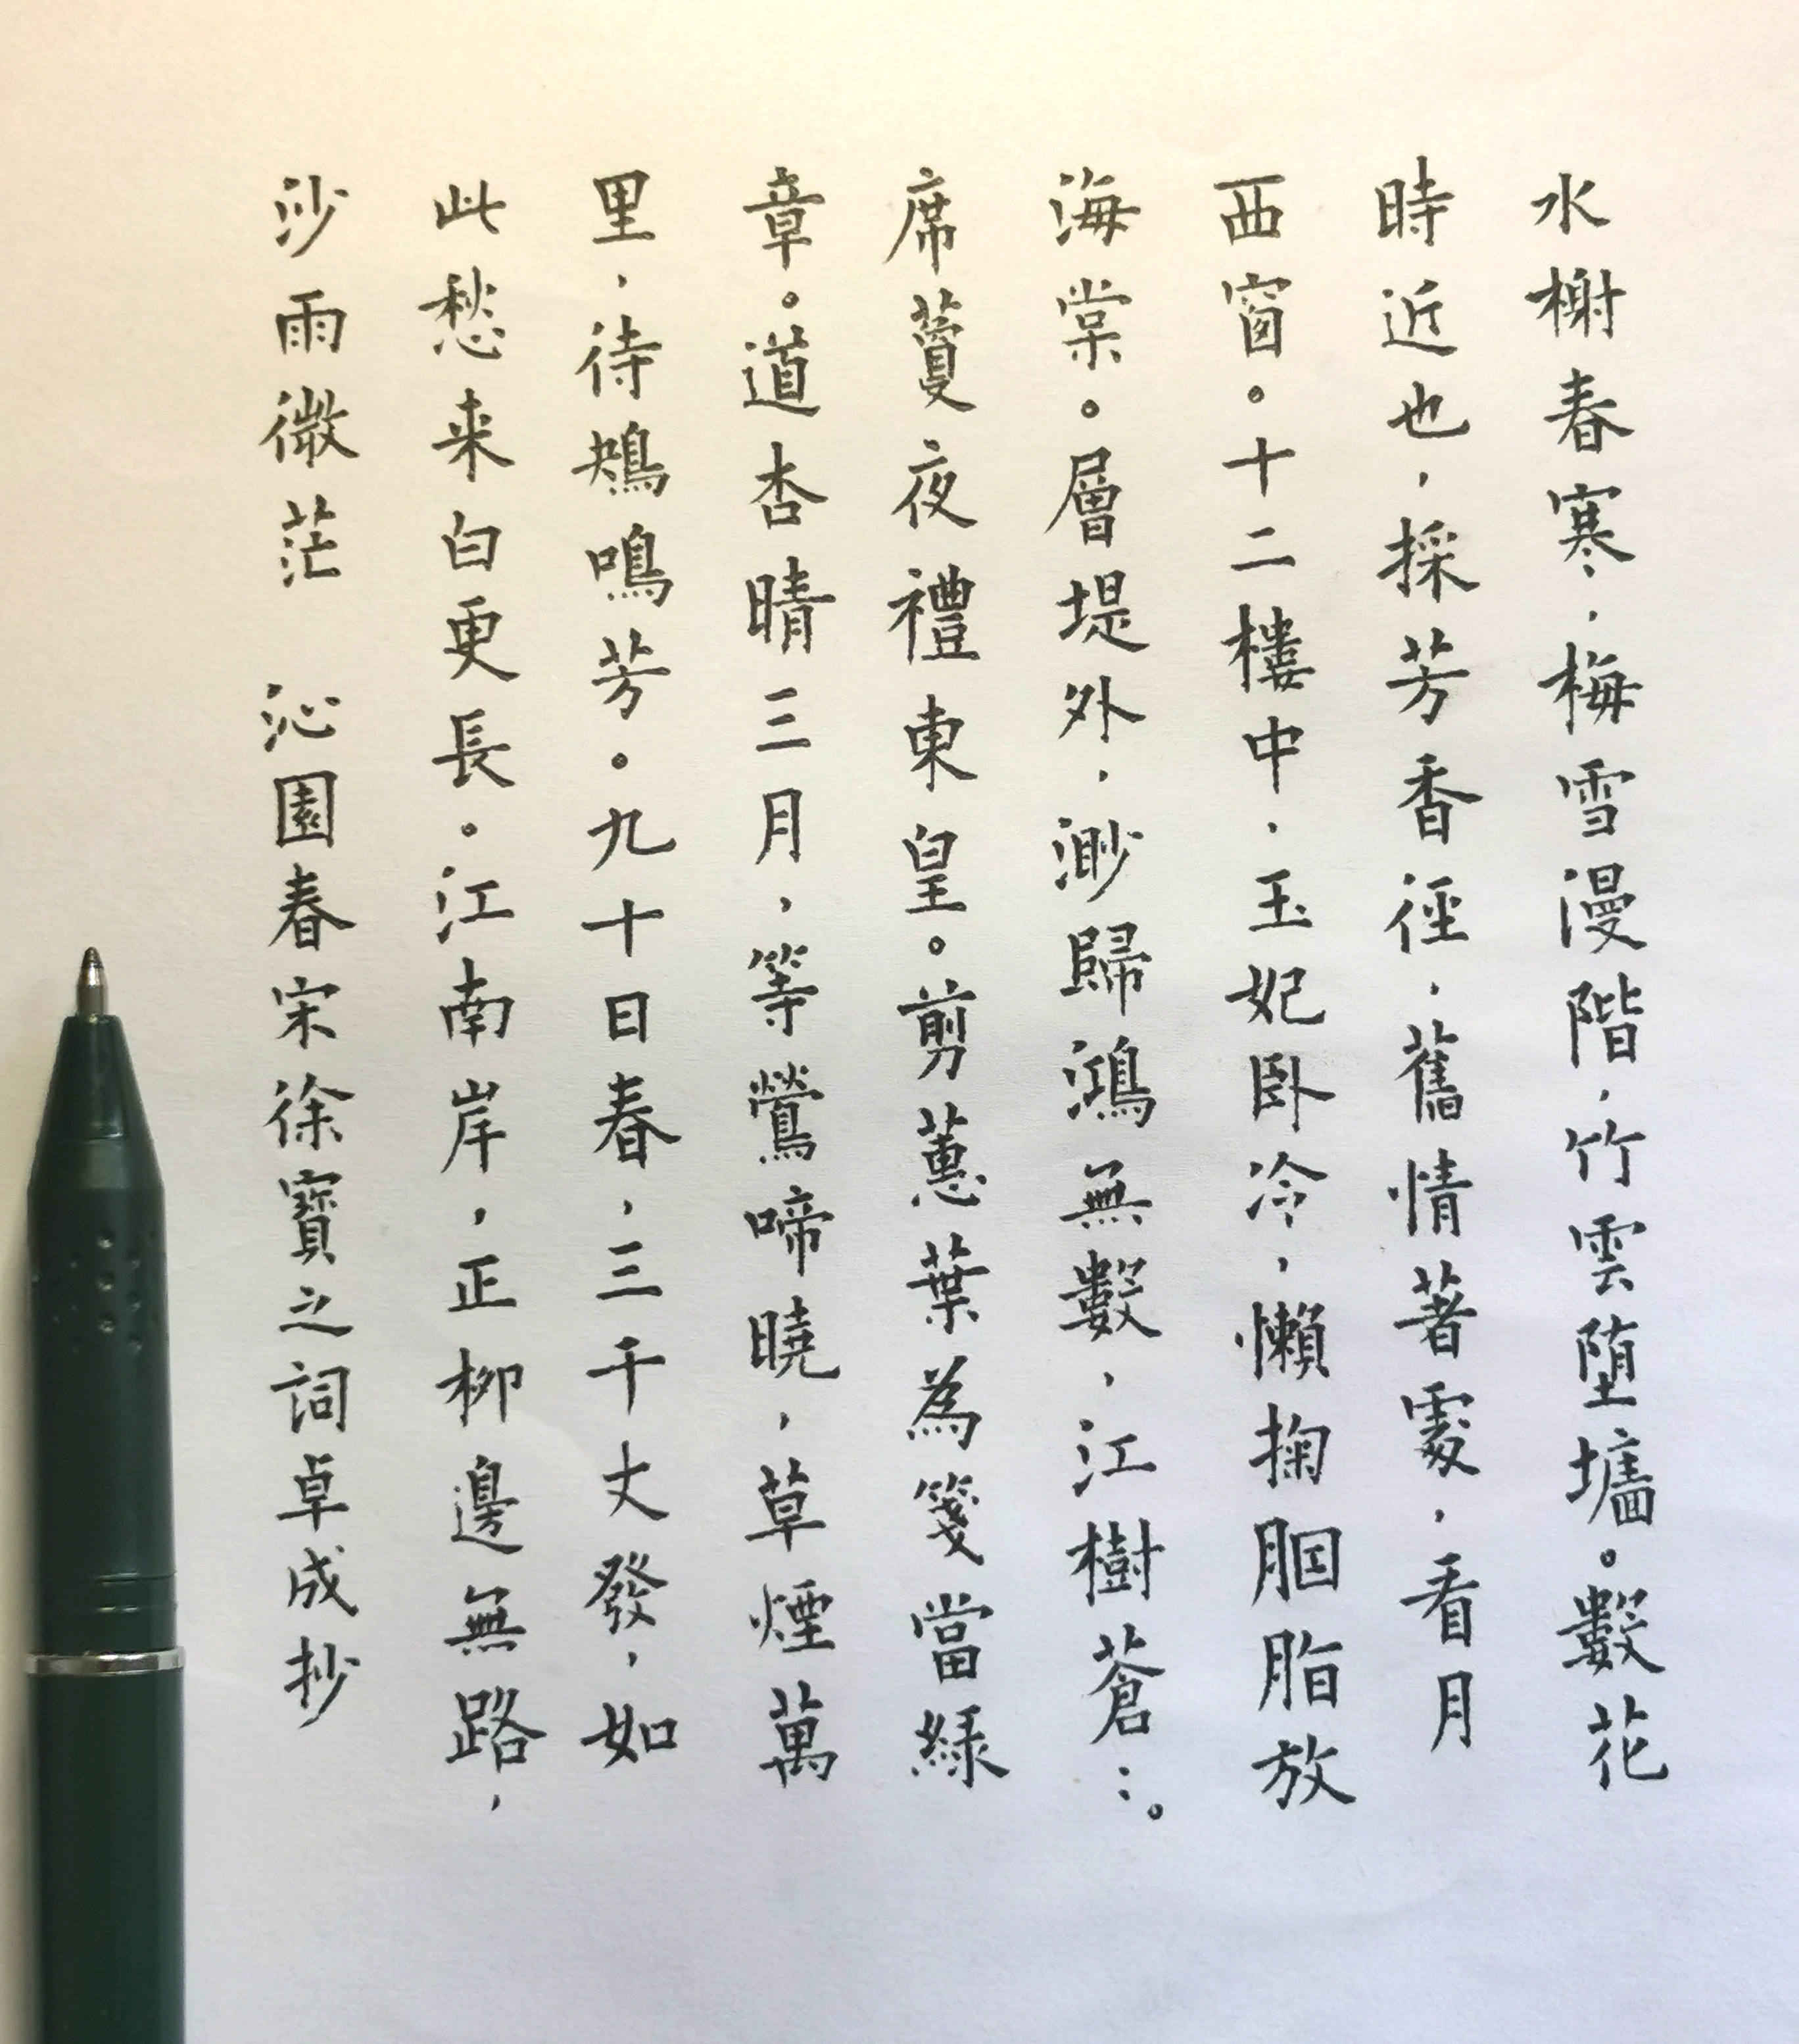 水榭春寒，梅雪漫階，竹雲堕墻。數花
時近也，採芳香徑，舊情著處，看月
西窗。十二樓中，玉妃卧冷，懶掬胭脂放
海棠。層堤外，渺歸鴻無數，江樹蒼：。
席蔓夜禮東皇。剪蕙葉為箋當綠
章。道杏晴三月，等鶯啼曉，草煙萬
里，待鴂鳴芳。九十日春，三千丈發，如
此愁来白更長。江南岸，正柳邊無路，
沙雨微茫 沁園春宋徐寶之詞卓成抄